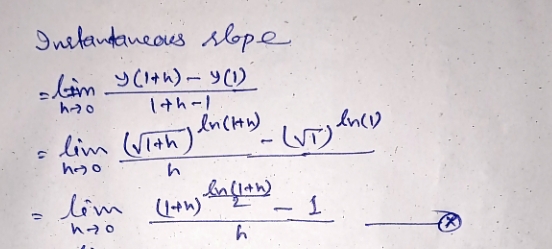 Instantaneous slope
= lim h→0 y(1+h) − y(1) / 1+h−1
= lim h→0 (√1+h)^ln(1+h) − (√1)^ln(1) / h
= lim h→0 (1+h)^ln(1+h)/2 − 1 / h —— ⊗